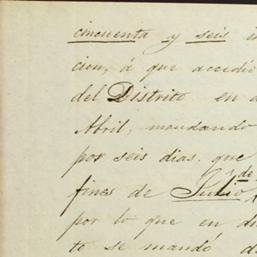 cincuenta y seis
cion, á que accedió
del Distrito en
Abril, mandando
por seis dias. que
de
fines de Junio
por lo que en
to se mandó